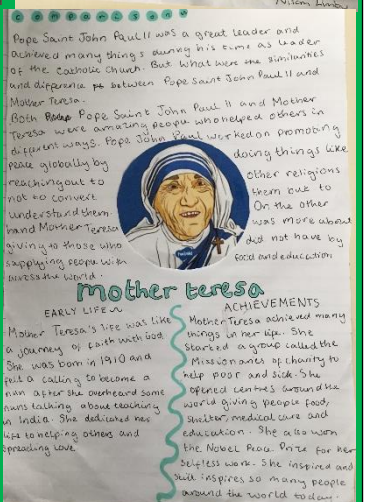 Nilani Limba
Comparisons
Pope Saint John Paul II was a great leader and
achieved many things during his time as leader
of the Catholic Church. But what were the similarities
and difference between Pope Saint John Paul II and
Mother Teresa.
Both Pope Saint John Paul II and Mother
Teresa were amazing people who helped others in
different ways. Pope John Paul worked on promoting
peace globally by doing things like
reaching out to other religions
not to convert them but to
understand them. On the other
hand Mother Teresa was more about
giving to those who did not have by
supplying people with food and education
across the world.
mother teresa
EARLY LIFE
Mother Teresa's life was like
a journey of faith with God.
She was born in 1910 and
felt a calling to become a
nun after she overheard some
nuns talking about teaching
in India. She dedicated her
life to helping others and
spreading love.
ACHIEVEMENTS
Mother Teresa achieved many
things in her life. She
started a group called the
Missionaries of charity to
help poor and sick. She
opened centres around the
world giving people food,
shelter, medical care and
education. She also won
the Nobel Peace Prize for her
selfless work. She inspired and
still inspires so many people
around the world today.